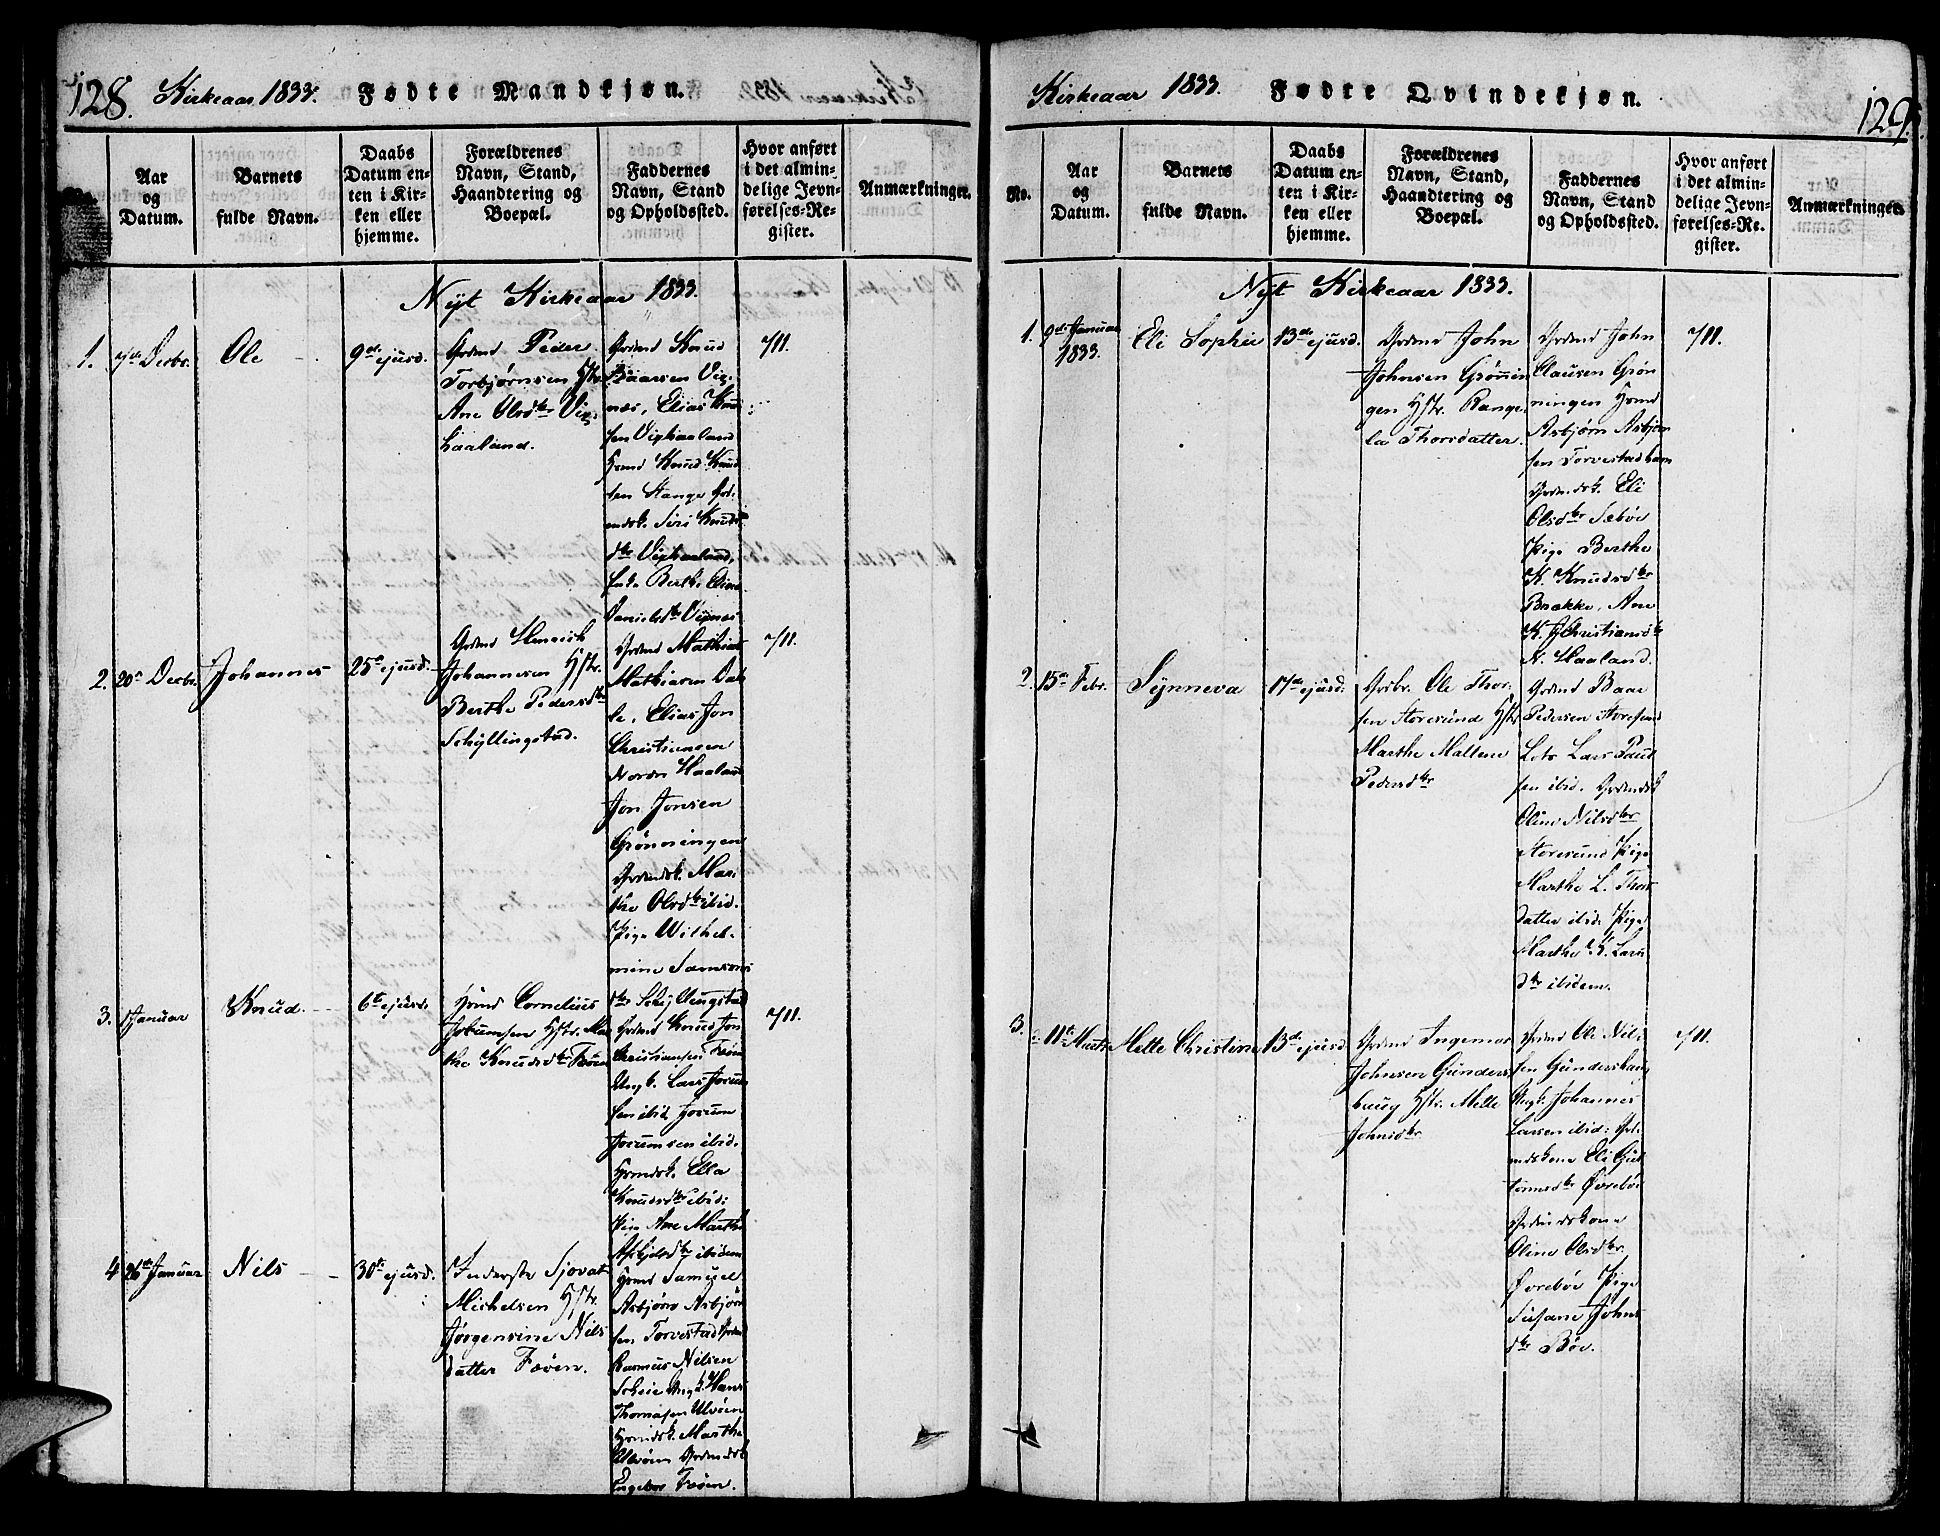 128. Kirkeaar 1833. Fødte Mandkjøn.
Aar og Datum.
Barnets fulde Navn.
Daabs Datum enten i Kirken eller hjemme.
Forældrenes Navn, Stand, Haandtering og Boepæl.
Faddernes Navn, Stand og Opholdssted.
Hvor anført i det almindelige Jevnførelses-Register.
Anmærkninger.
Nyt Kirkeaar 1833.
1. 7de Decbr. Ole 9de ejusd.
Grdmd Peder
Torbjørnsen Hstr.
Ane Olsdtr Vix-
haaland.
Grdmd Knud
Baarsen Vig-
næs, Elias Knud
sen Vixhaaland
Hsmd Knud Knud
sen Stange Grd-
mdsk. Siri Knuds
dtr Vixhaaland,
Berthe Elise
Danielsdtr Vignæs
7/11.
2. 20de Decbr. Johannes 25de ejusd.
Grdmd Henrich
Johannesen Hstr.
Berthe Pedersdtr
Schyllingstad.
Grdmd Mathias
Mathiasen Dah
le, Elias Jon
Christiansen
Nordr Haaland
Jon Jonsen
Grønningen
Grdmdsk. Mar
the Olsdtr ibid.
Pige Wilhel-
mine Samsons
dtr Schyllingstad
7/11.
3. Januar Knud. 6te ejusd.
Hsmd Cornelius
Jorumsen Hstr. Mar
the Knudsdtr Fæøen
Grdmd Knud Jon
Christiansen Fæøen
Ungk. Lars Jorum
sen ibid, Jorum
Jorumsen ibid.
Hsmdsk. Ella
Knudsdtr ibid:
Pige Ane Marthe
dtr ibidem
7/11.
4. 26de Januar Nils 30te ejusd.
Inderste Sjovat
Michelsen Hstr.
Jørgensine Nils
datter Fæøen.
Hsmd Samuel
Asbjørn Asbjørn
sen Torvestad Grdmd
Rasmus Nilsen
Scheie Ungk. Hans
Thomasen Ulvøen
Hsmdsk. Marthe
Ulvøen Grdmdsk
Ingebor Fæøen.
Kirkeaar 1833. Fødte Qvindekjøn. 129.
No.
Aar og Datum.
Barnets fulde Navn.
Daabs Datum enten i Kirken eller hjemme.
Forældrenes Navn, Stand, Haandtering og Boepæl.
Faddernes Navn, Stand og Opholdssted.
Hvor anført i det almindelige Jevnførelses-Register.
Anmærkninger.
Nyt Kirkeaar 1833.
1. 9de Januar 1833. Eli Sophie 13de ejusd.
Grdmd John
Johnsen Grønnin
gen Hstr. Range
la Thorsdatter.
Grdmd John
Clausen Grøn
ningen Hsmd
Asbjørn Asbjørn
sen Torvestad
Grdmdsk. Eli
Olsdtr Sæbøe
Pige Berthe
K. Knudsdtr
Brække, Ane
K. J. Christiansdtr
N. Haaland.
7/11.
2. 15de Febr. Synneva 17de ejusd.
Grdbr. Ole Thor-
sen Storesund Hstr
Marthe Mallene
Pedersdtr
Grdmd Baar
Pedersen Storesund
Lots Lars Paul
sen ibid. Grdmdsk
Oline Nilsdtr
Storesund Pige
Marthe L. Thors
datter ibid. Pige
Marthe K. Lars
dtr ibidem.
3. 11te Marts Mette Christine 13de ejusd
Grdmd Ingemar
Johnsen Gunders-
haug Hstr. Mette
Johnsdtr
Grdmd Ole Nil-
sen Gundershaug
Ungk. Johannes
Larsen ibid: Grd-
mdskone Eli Gut
tormsdtr Øvrebøe
Grdmdskone
Oline Olsdtr
Øvrebøe Pige
Susane Johns
dtr Bøe.
7/11.